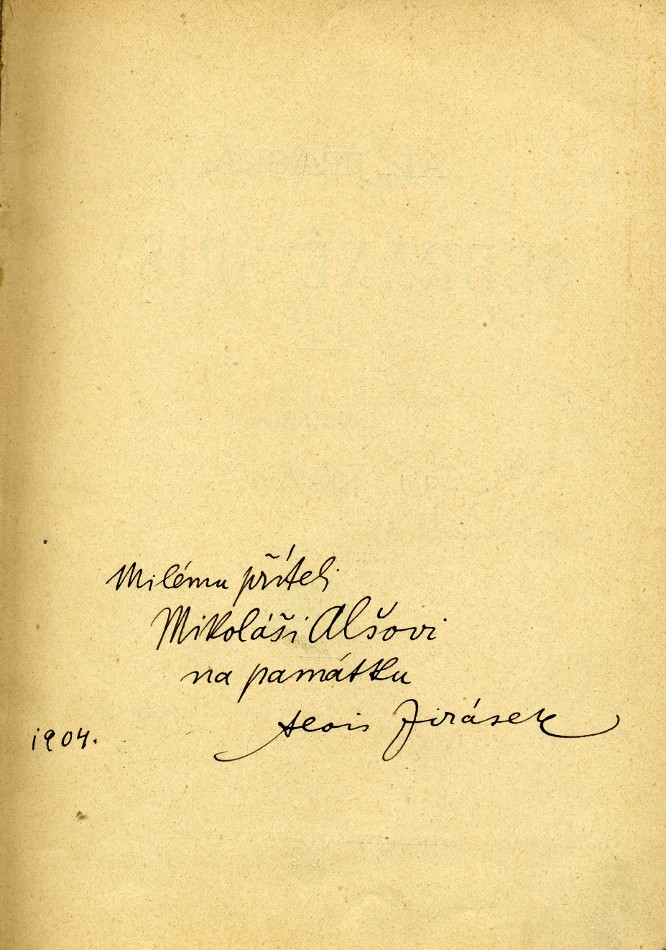 Milému příteli
Mikoláši Alšovi
na památku
Alois Jirásek
1904.